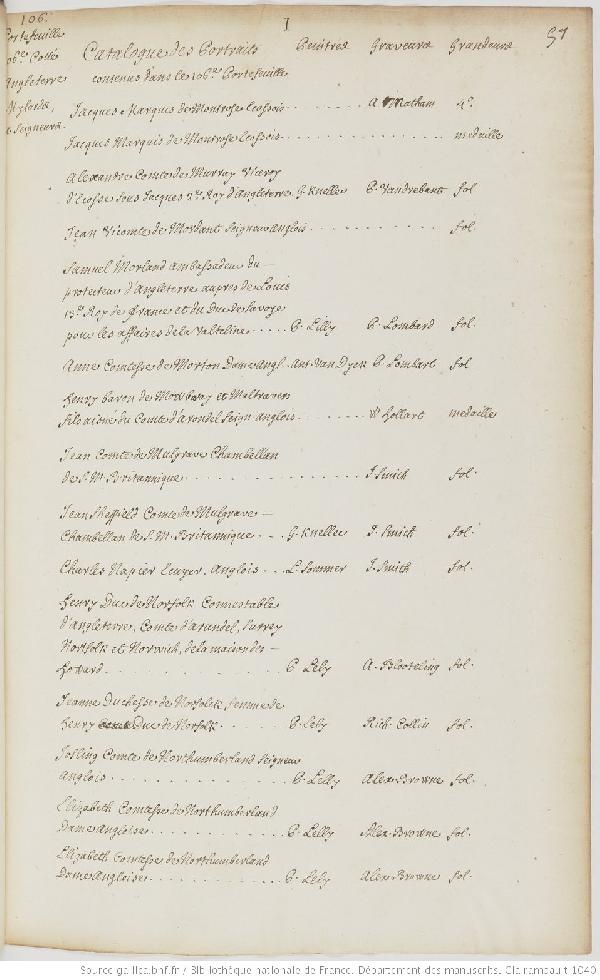 106.
I
37
Portefeuille
106.e Costé
Angleterre
Anglois
& Seigneurs.
Catalogue des Portraits Peintres Graveurs Grandeurs
contenus dans le 106.me Portefeuille
Jacques Marques de Montrose Ecossois . . . . . . . A Matham 4.o
Jacques Marquis de Montrose Ecossois . . . . . . . medaille
Alexandre Comte de Murray Viceroy
d'Ecosse sous Jacques 2.d Roy d'Angleterre G. Kneller P. Vandrebant fol
Jean Vicomte de Mordant Seigneur anglois . . . . . . . fol.
Samuel Morland ambassadeur du —
protecteur d'Angleterre aupres de Louis
13.e Roy de france et du Duc de Savoye
pour les affaires de la Valteline . . . . . P. Lilly P. Lombard fol.
Anne Comtesse de Morton Dame Angl. Ant. Van Dyck P. Lombart fol
henry baron de Mowbray et Maltravers
fils aisné du Comte d'arondel Seign anglois . . . . . . . W hollart medaille
Jean Comte de Mulgrave Chambellan
de S. M. Britannique . . . . . . . J. Smith fol.
Jean Sheffield Comte de Mulgrave —
Chambellan de S. M. Britannique . . . G. Kneller J. Smith fol.
Charles Napier Ecuyer. Anglois . . . L. Sommer J. Smith fol.
henry Duc de Norfolk Connestable
d'angleterre, Comte d'arundel, Surrey
Norfolk et Norwich, de la maison des —
howard . . . . . . . P. Lely A. Blooteling fol.
Jeanne Duchesse de Norfolck femme de
henry Duc de Norfolk . . . . . P. Lely Rich. Collin fol.
Josling Comte de Northumberland Seigneur
anglois . . . . . . . P. Lelly Alex. Browne fol.
Elizabeth Comtesse de Northumberland
Dame Angloise . . . . . . . P. Lelly Alex. Browne fol.
Elizabeth Comtesse de Northumberland
Dame Angloise . . . . . . . P. Lely Alex. Browne fol.
Source gallica.bnf.fr / Bibliothèque nationale de France. Département des manuscrits. Clairambault 1040